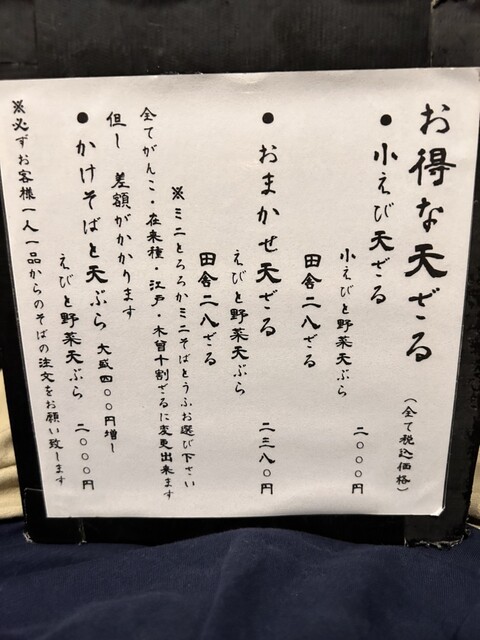 お得な天ざる
(全て税込価格)
● 小えび天ざる
小えびと野菜天ぷら 二〇〇〇円
田舎二八ざる
● おまかせ天ざる
えびと野菜天ぷら 二三八〇円
田舎二八ざる
※ミニとろろかミニそばとうふお選び下さい
全てがんこ・在来種・江戸・木曽十割ざるに変更出来ます
但し 差額がかかります
● かけそばと天ぷら 大盛四〇〇円増し
えびと野菜天ぷら 二〇〇〇円
※必ずお客様一人一品からのそばの注文をお願い致します